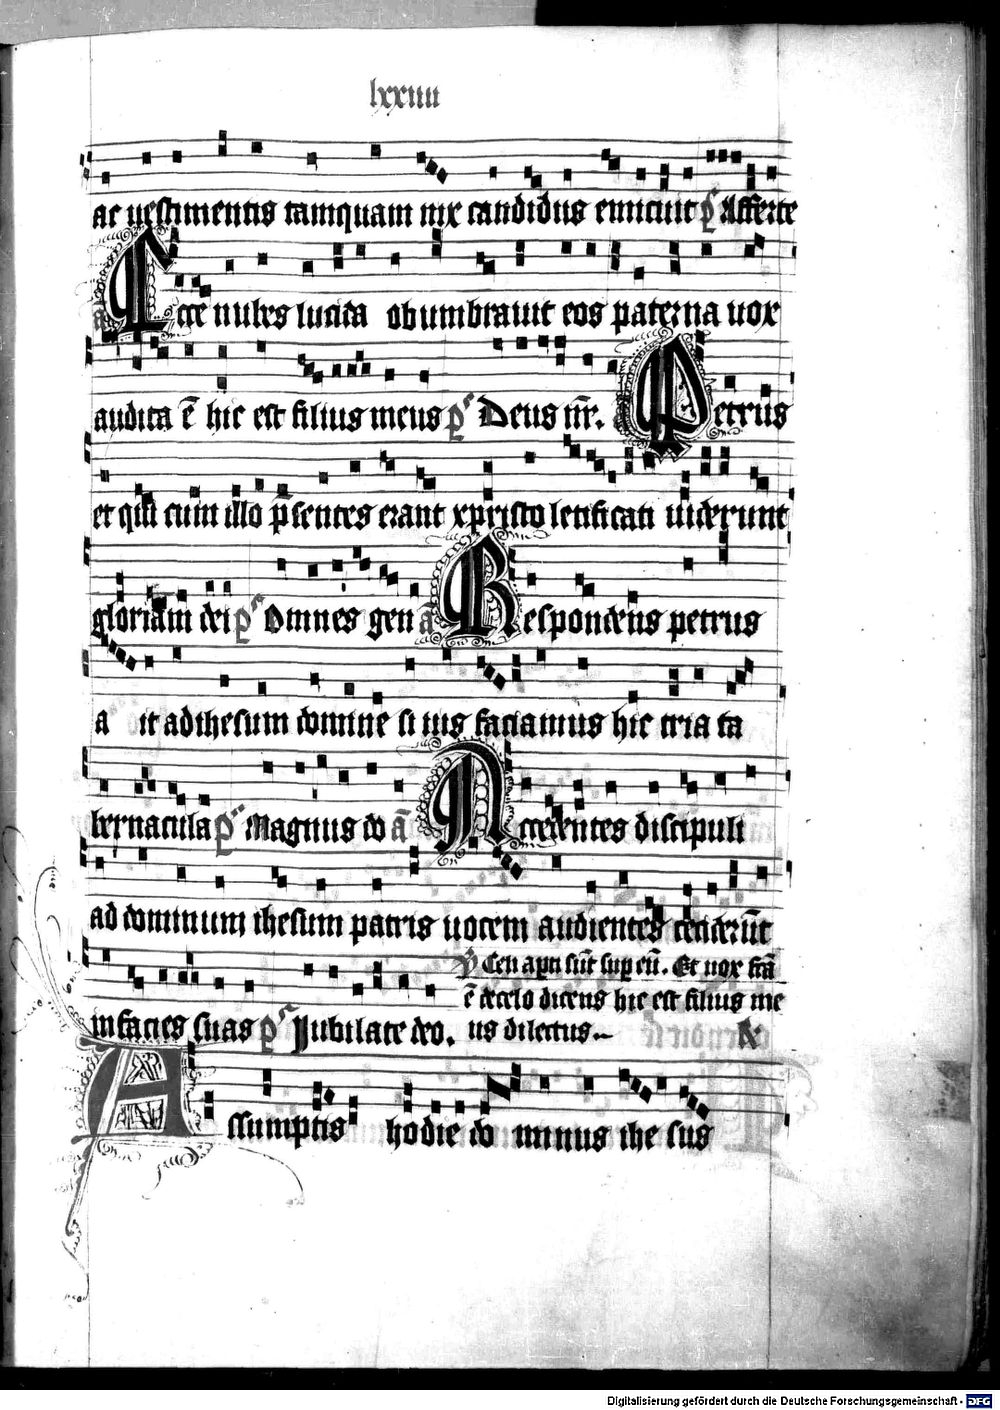 lxxiiii
ac uestimentis tamquam nix candidus emicuit p̄s Afferte
a Ecce nubes lucida obumbrauit eos paterna uox
audita ē hic est filius meus p̄s Deus nr̄. Petrus
et qui cum illo p̄sentes erant xpristo letificati uiderunt
gloriam dei p̄s Omnes gen ā Respondens petrus
a it ad ihesum domine si uis faciamus hic tria ta
bernacula p̄s Magnus do ā Accedentes discipuli
ad dominum ihesum patris uocem audientes ceciderūt
in facies suas p̄s Jubilate deo.
sūt sup eū. Et uox fctā
ē de celo dicens hic est filius me
us dilectus
Assumptis hodie do minus ihe sus
Digitalisierung gefördert durch die Deutsche Forschungsgemeinschaft - DFG